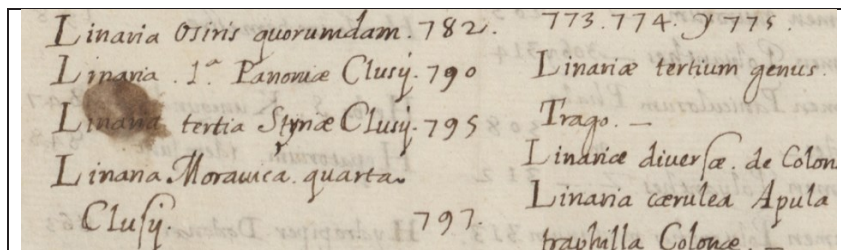 Linaria Osiris quorumdam. 782.
Linaria. 1ª Panoniæ Clusij. 790
Linaria tertia Styriæ Clusij. 795
Linaria Morauica quarta.
Clusij. 797.
773. 774. y 775.
Linariæ tertium genus.
Trago. —
Linariæ diversæ. de Colon
Linaria cærulea Apula
traphilla Colonæ —